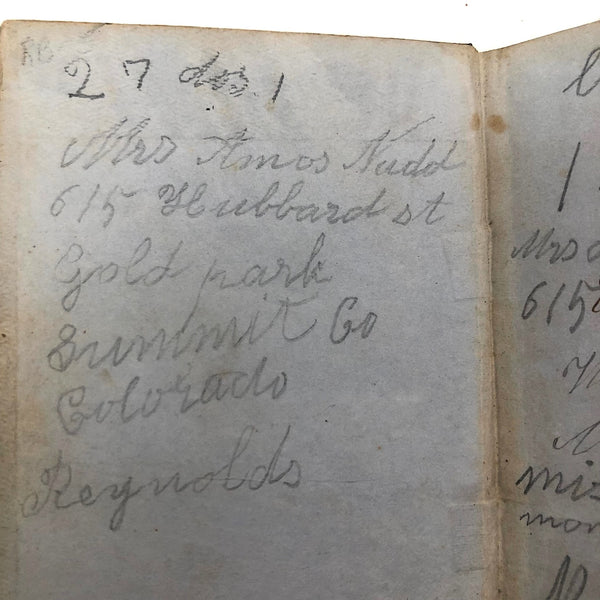 27
Mrs Amos Nudd
615 Hubbard st
Gold park
Summit Co
Colorado
Reynolds
Mrs
615